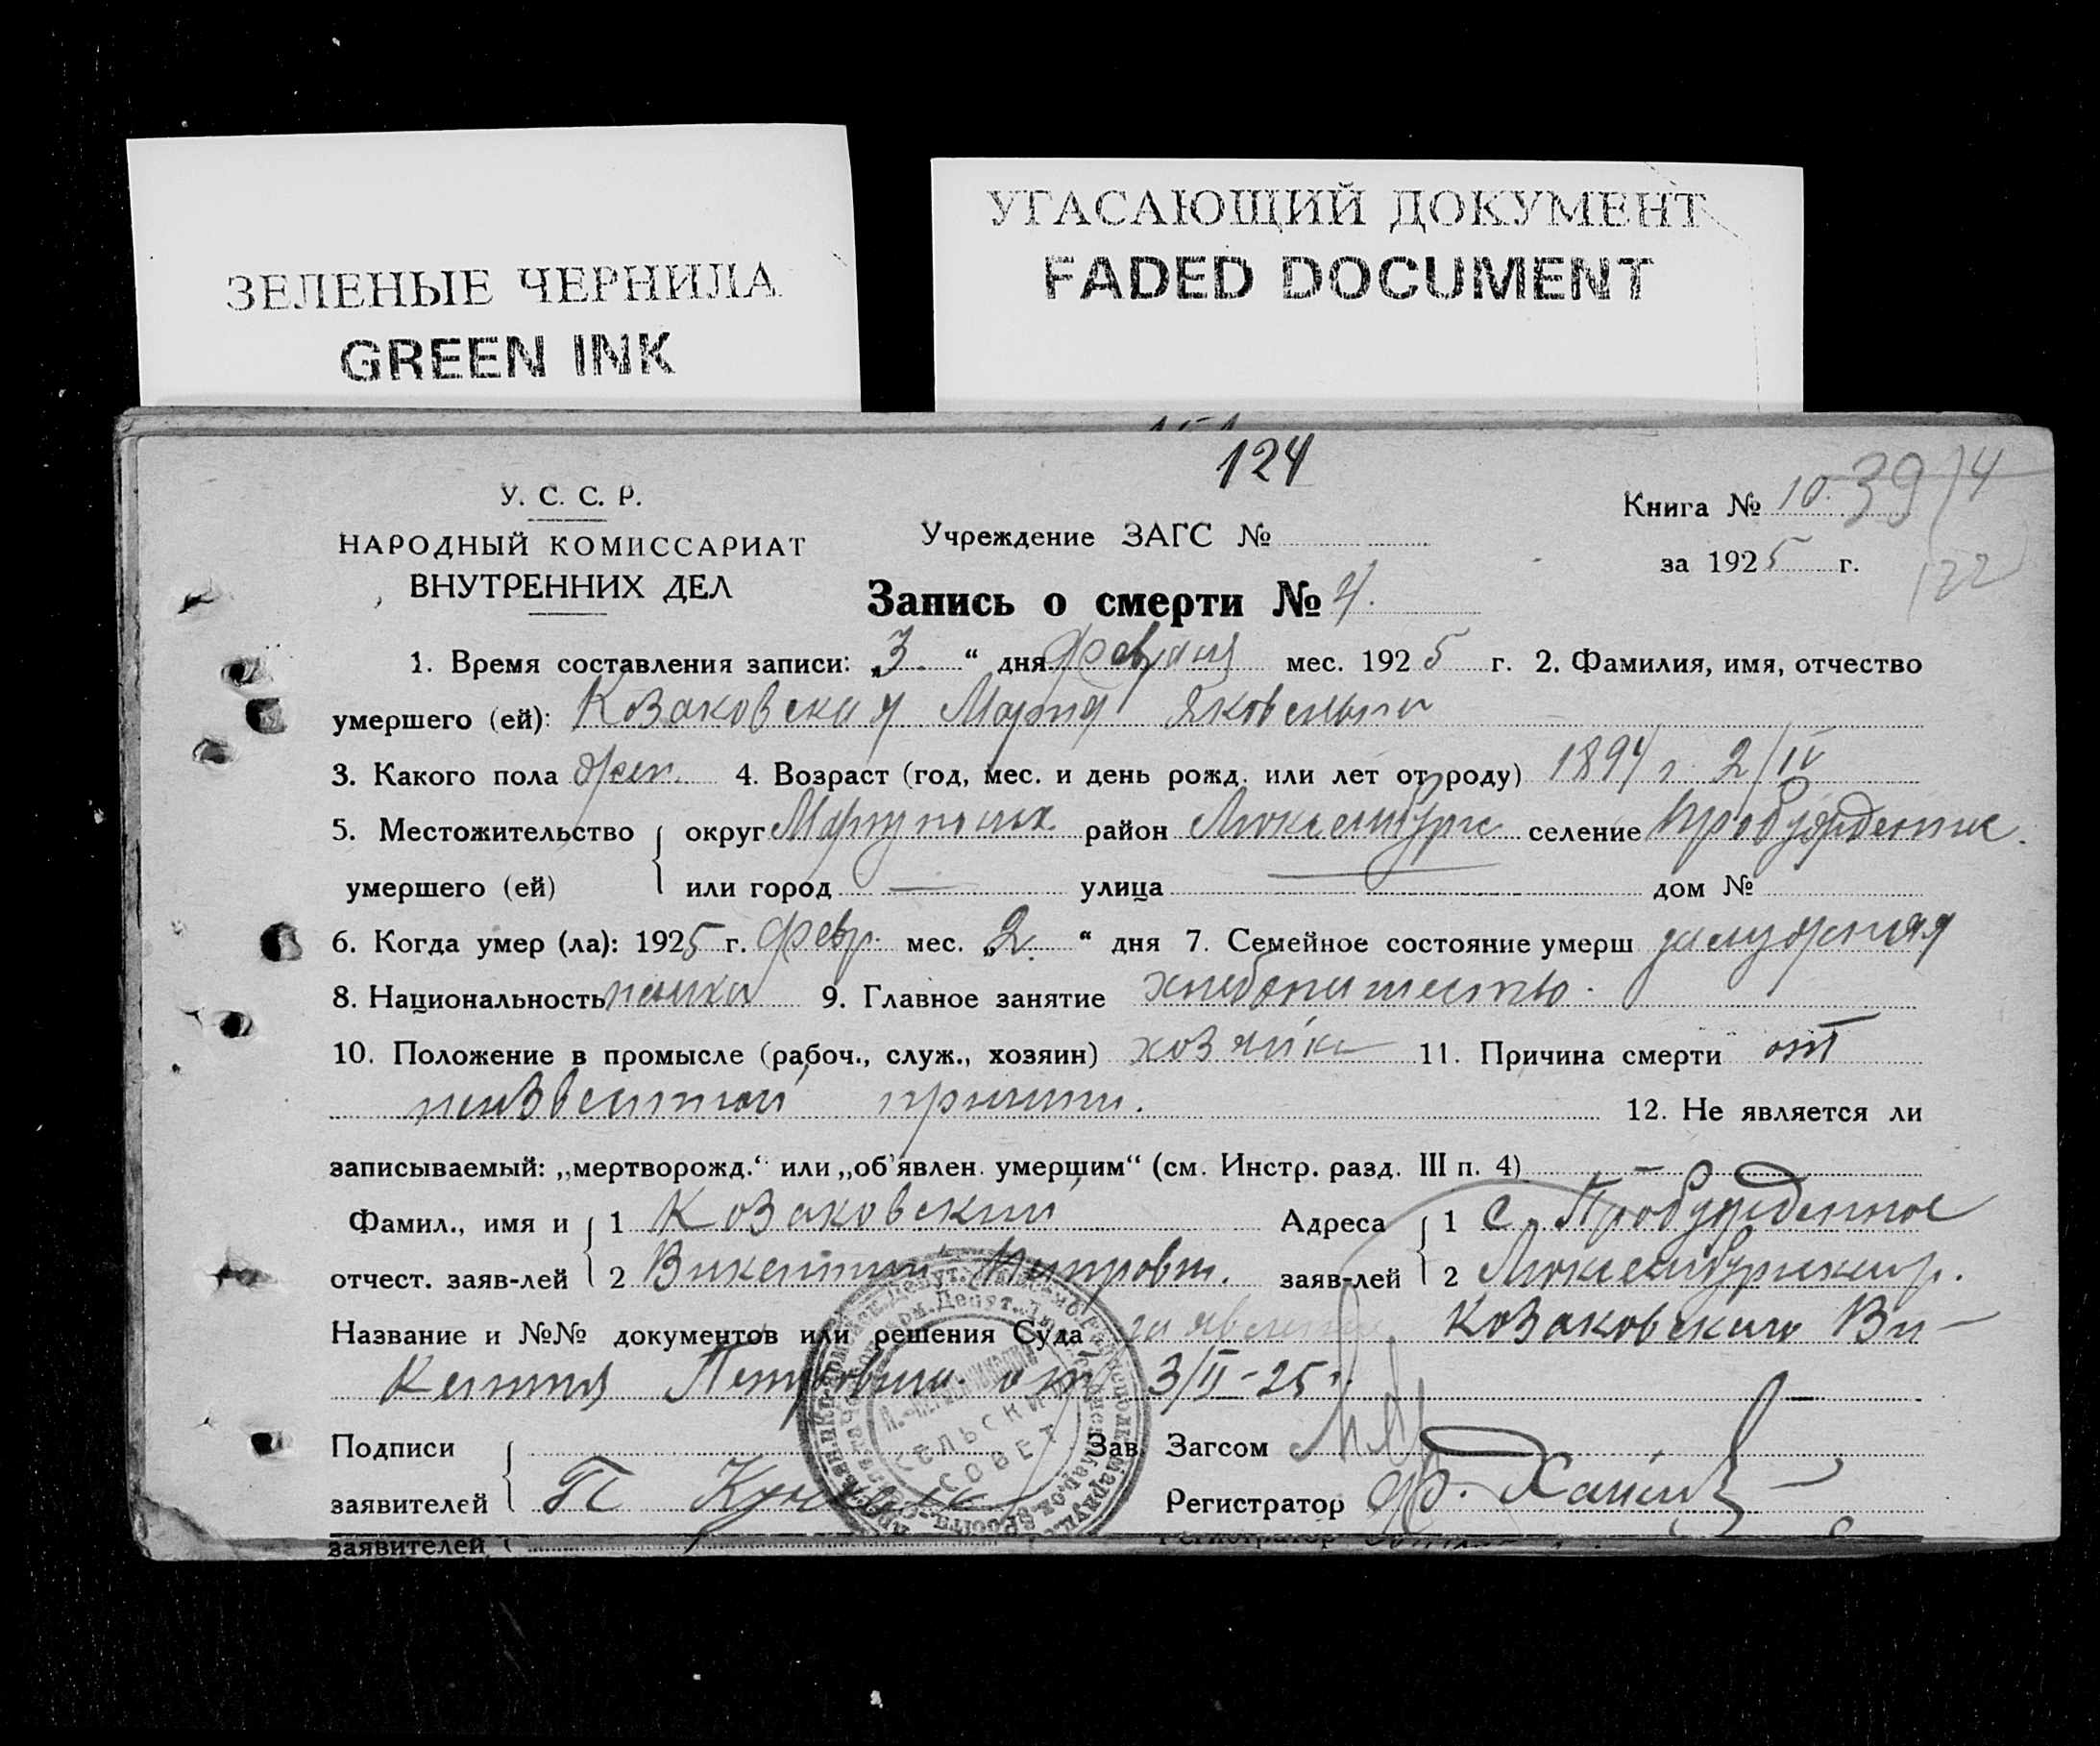 ЗЕЛЕНЫЕ ЧЕРНИЛА
GREEN INK
УГАСАЮЩИЙ ДОКУМЕНТ
FADED DOCUMENT
124
У. С. С. Р.
НАРОДНЫЙ КОМИССАРИАТ
ВНУТРЕННИХ ДЕЛ
Учреждение ЗАГС №
Книга № 10. 39 /4
за 1925 г. 122
Запись о смерти № 4.
1. Время составления записи: „3“ дня февраля мес. 1925 г. 2. Фамилия, имя, отчество
умершего (ей): Козаковская Мария Яковельна
3. Какого пола жен. 4. Возраст (год, мес. и день рожд. или лет от роду) 1894 г 2/IV
5. Местожительство округ Мариупольск район Люксембургс селение Пробуждение.
умершего (ей) или город — улица — дом №
6. Когда умер (ла): 1925 г. февр. мес. „2.“ дня 7. Семейное состояние умерш замужняя
8. Национальность полька 9. Главное занятие хлебопашество.
10. Положение в промысле (рабоч., служ., хозяин) хозяйка 11. Причина смерти от
неизвестной причини. 12. Не является ли
записываемый: „мертворожд.“ или „об'явлен. умершим“ (см. Инстр. разд. III п. 4) —
Фамил., имя и 1 Козаковский Адреса 1 с. Пробужденное
отчест. заяв-лей 2 Викентий Петрович. заяв-лей 2 Люксембургскаир.
Название и №№ документов или решения Суда заявление Козаковского Ви-
кентия Петровича от 3/II-25 г.
СЕЛЬСКИЙ
СОВЕТ
Подписи Зав. Загсом
заявителей П Регистратор Ф.
заявителей
Регистратор